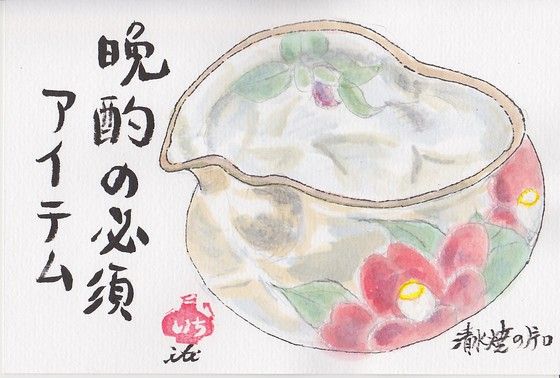 晩酌の必須
アイテム
いち
清水焼の片口